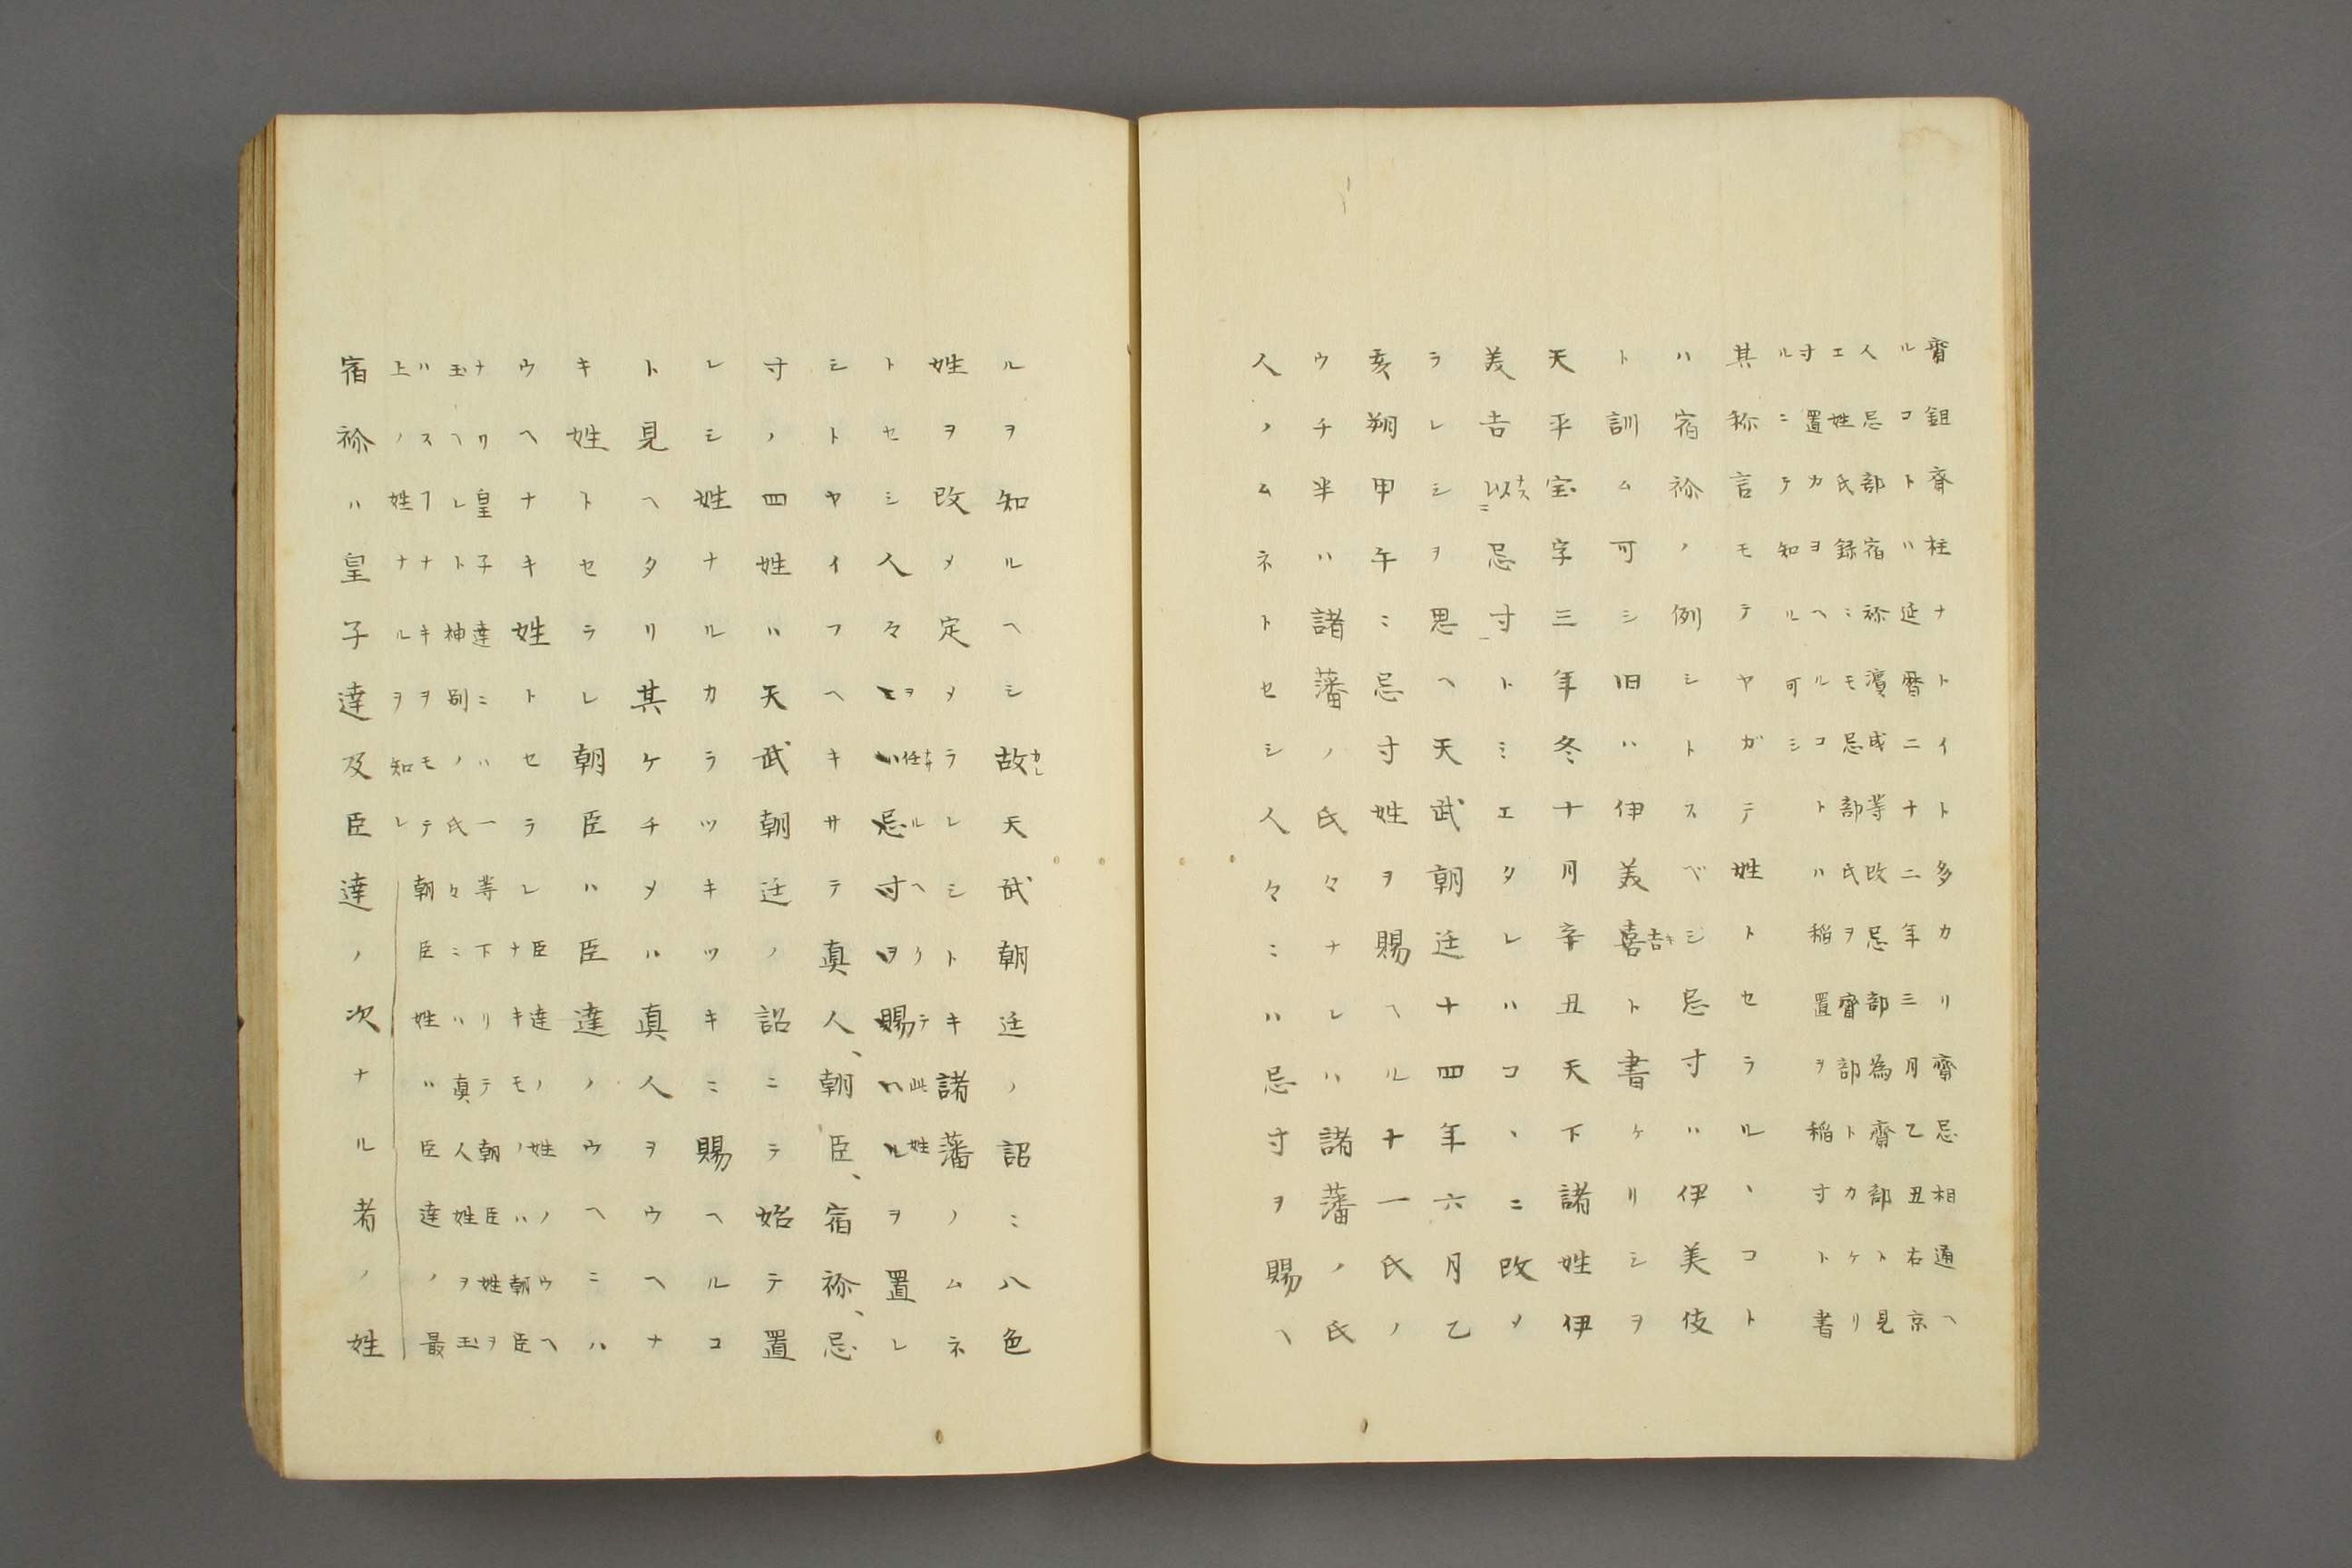 齋鉏齊柱ナトイト多カリ齋忌相通ヘ
ルコトハ延暦二十二年三月乙丑右京
人忌部宿祢濱成等改忌部為齋部ト見
エ姓氏録ニモ忌部氏ヲ齋部トカケリ
寸置カヲヘルコトハ稲置ヲ稲寸ト書
ルニテ知ル可シ
其称言モテヤガテ姓トセラルヽコト
ハ宿祢ノ例シトスベシ忌寸ハ伊美伎
ト訓ム可シ旧ハ伊美喜吉キト書ケリシヲ
天平宝字三年冬十月辛丑天下諸姓伊
美吉以ナス忌寸トミエタレハコヽニ改メ
ラレシヲ思ヘ天武朝廷十四年六月乙
亥朔甲午ニ忌寸姓ヲ賜ヘル十一氏ノ
ウチ半ハ諸藩ノ氏々ナレハ諸藩ノ氏
人ノムネトセシ人々ニハ忌寸ヲ賜ヘ
ルヲ知ルヘシ故カレ天武朝廷ノ詔ニ八色
姓ヲ改メ定メラレシトキ諸藩ノムネ
トセシ人々ヲ任ナサルヘクテ此姓ヲ置レ
シトヤイフヘキサテ真人、朝臣、宿祢、忌
寸ノ四姓ハ天武朝廷ノ詔ニテ始テ置
レシ姓ナルカラツキツキニ賜ヘルコ
ト見ヘタリ其ケチメハ真人ヲウヘナ
キ姓トセラレ朝臣ハ臣達ノウヘニハ
ウヘナキ姓トセラレ
臣達ノ姓ノウヘ
ナキモノハ朝臣
ナリ皇子達ニハ一等下リテ朝臣姓ヲ
玉ヘレト神別ノ氏々ニハ真人姓ヲ玉
ハスヿナキヲモテ朝臣姓ハ臣達ノ最
上ノ姓ナルヲ知レ
宿祢ハ皇子達及臣達ノ次ナル者ノ姓